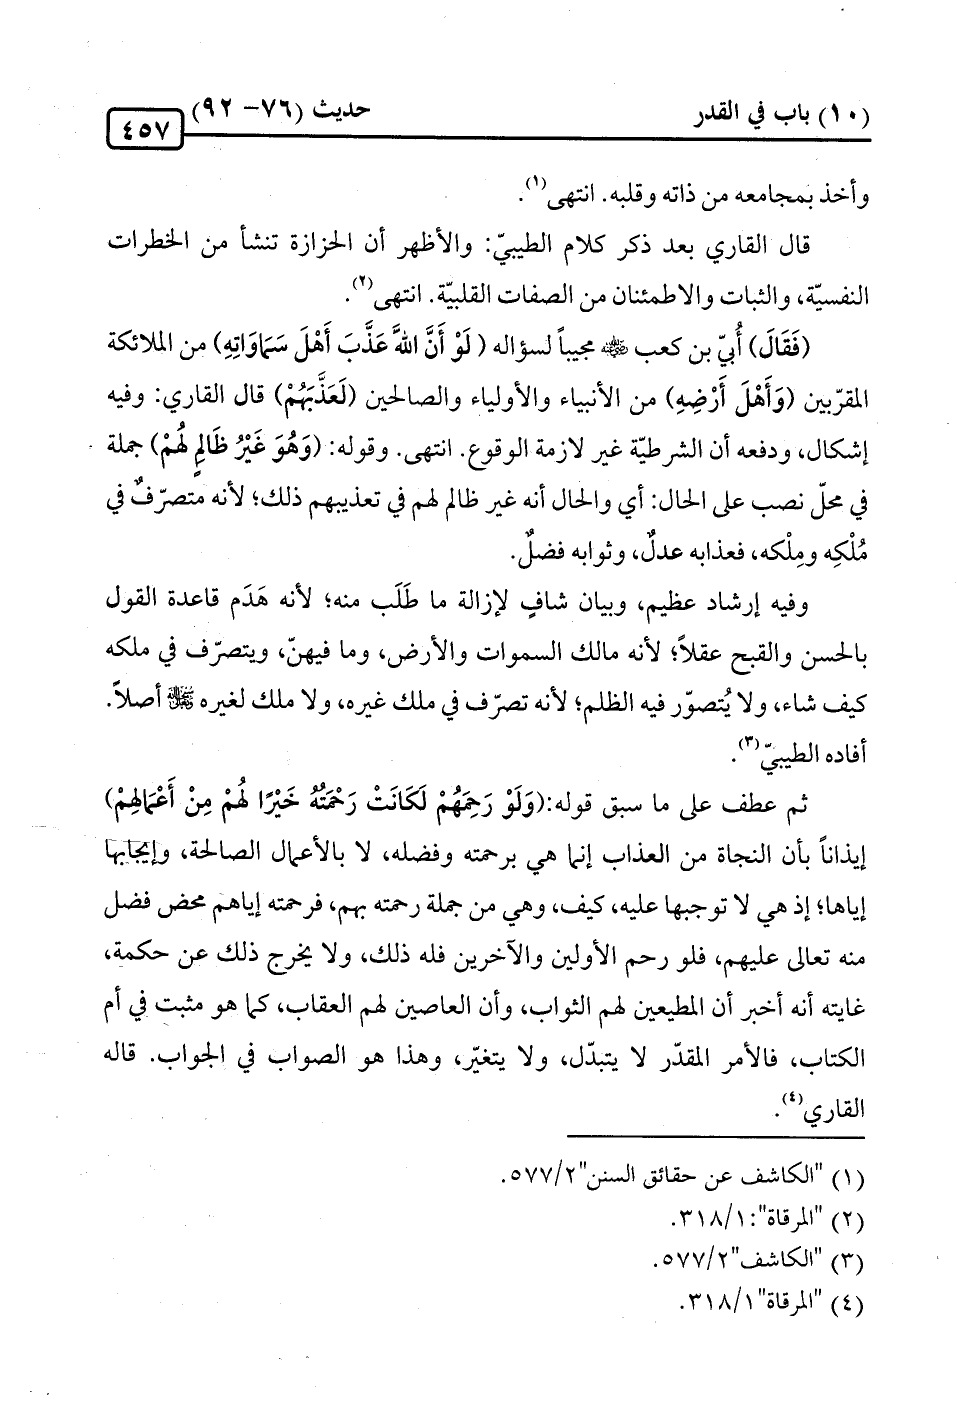 (١٠) باب في القدر
حديث (٧٦- ٩٢)
٤٥٧
وأخذ بمجامعه من ذاته وقلبه. انتهى(١).
قال القاري بعد ذكر كلام الطيبيّ: والأظهر أن الحزازة تنشأ من الخطرات
النفسيّة، والثبات والاطمئنان من الصفات القلبيّة. انتهى(٢).
(فَقَالَ) أُبيّ بن كعب ﷺ مجيباً لسؤاله (لَوْ أَنَّ اللهَ عَذَّبَ أَهْلَ سَمَاوَاتِهِ) من الملائكة
المقرّبين (وَأَهْلَ أَرْضِهِ) من الأنبياء والأولياء والصالحين (لَعَذَّبَهُمْ) قال القاري: وفيه
إشكال، ودفعه أن الشرطيّة غير لازمة الوقوع. انتهى. وقوله: (وَهُوَ غَيْرُ ظَالِمٍ لَهُمْ) جملة
في محلّ نصب على الحال: أي والحال أنه غير ظالم لهم في تعذيبهم ذلك؛ لأنه متصرّفٌ في
مُلْكِه ومِلْكه، فعذابه عدلٌ، وثوابه فضلٌ.
وفيه إرشاد عظيم، وبيان شافٍ لإزالة ما طَلَب منه؛ لأنه هَدَم قاعدة القول
بالحسن والقبح عقلاً؛ لأنه مالك السموات والأرض، وما فيهنّ، ويتصرّف في ملكه
كيف شاء، ولا يُتصوّر فيه الظلم؛ لأنه تصرّف في ملك غيره، ولا ملك لغيره ﷻ أصلاً.
أفاده الطيبيّ(٣).
ثم عطف على ما سبق قوله:(وَلَوْ رَحِمَهُمْ لَكَانَتْ رَحْمَتُهُ خَيْرًا لَهُمْ مِنْ أَعْمَالِهِمْ)
إيذاناً بأن النجاة من العذاب إنما هي برحمته وفضله، لا بالأعمال الصالحة، وإيجابها
إياها؛ إذ هي لا توجبها عليه، كيف، وهي من جملة رحمته بهم، فرحمته إياهم محض فضل
منه تعالى عليهم، فلو رحم الأولين والآخرين فله ذلك، ولا يخرج ذلك عن حكمة،
غايته أنه أخبر أن المطيعين لهم الثواب، وأن العاصين لهم العقاب، كما هو مثبت في أم
الكتاب، فالأمر المقدّر لا يتبدّل، ولا يتغيّر، وهذا هو الصواب في الجواب. قاله
القاري(٤).
(١) "الكاشف عن حقائق السنن"٥٧٧/٢.
(٢) "المرقاة":٣١٨/١.
(٣) "الكاشف"٥٧٧/٢.
(٤) "المرقاة"٣١٨/١.